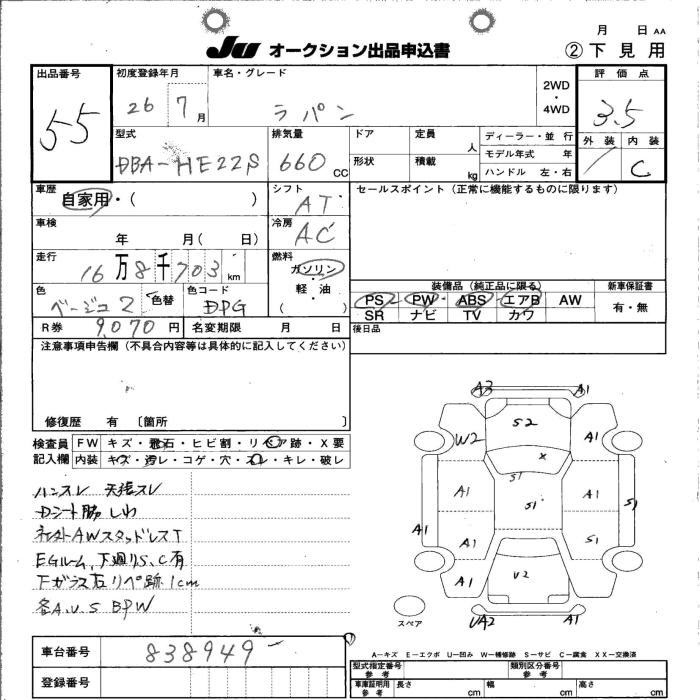 月 日 AA
JU オークション出品申込書 ②下見用
出品番号 初度登録年月 車名・グレード 2WD・4WD 評価点
55 26 7月 ラパン 3.5
型式 排気量 ドア 定員 人 ディーラー・並行 外装 内装
DBA-HE22S 660 CC 形状 積載 kg モデル年式 年 C
ハンドル 左・右
車歴 シフト セールスポイント(正常に機能するものに限ります)
自家用・( ) AT
車検 冷房
年 月( 日) AC
走行 燃料
16万8千703km ガソリン・軽油
色 色替 色コード ( ) 装備品(純正品に限る) 新車保証書
ベージュ2 DPG PS PW ABS エアB AW 有・無
SR ナビ TV カワ
R券 9,070円 名変期限 月 日 後日品
注意事項申告欄(不具合内容等は具体的に記入してください)
修復歴 有 〔箇所 〕
検査員記入欄 FW キズ・飛石・ヒビ割・リペア跡・X要
内装 キズ・汚レ・コゲ・穴・スレ・キレ・破レ
ハンスレ 天張スレ
Dシート脇 しわ
社外AWスタッドレスT
EGルーム、下廻りS、C有
Fガラス右リペ跡1cm
各A.U.S BPW
A3 A1
S2
W2 A1
X
S1
A1 S1 A1 S1
A1 A1 A1
A1 U2 A1
スペア UA2 A1
車台番号 838949
登録番号
A－キズ E－エクボ U－凹み W－補修跡 S－サビ C－腐食 XX－交換済
型式指定番号 参考 類別区分番号 参考
車庫証明用 参考 長さ cm 幅 cm 高さ cm